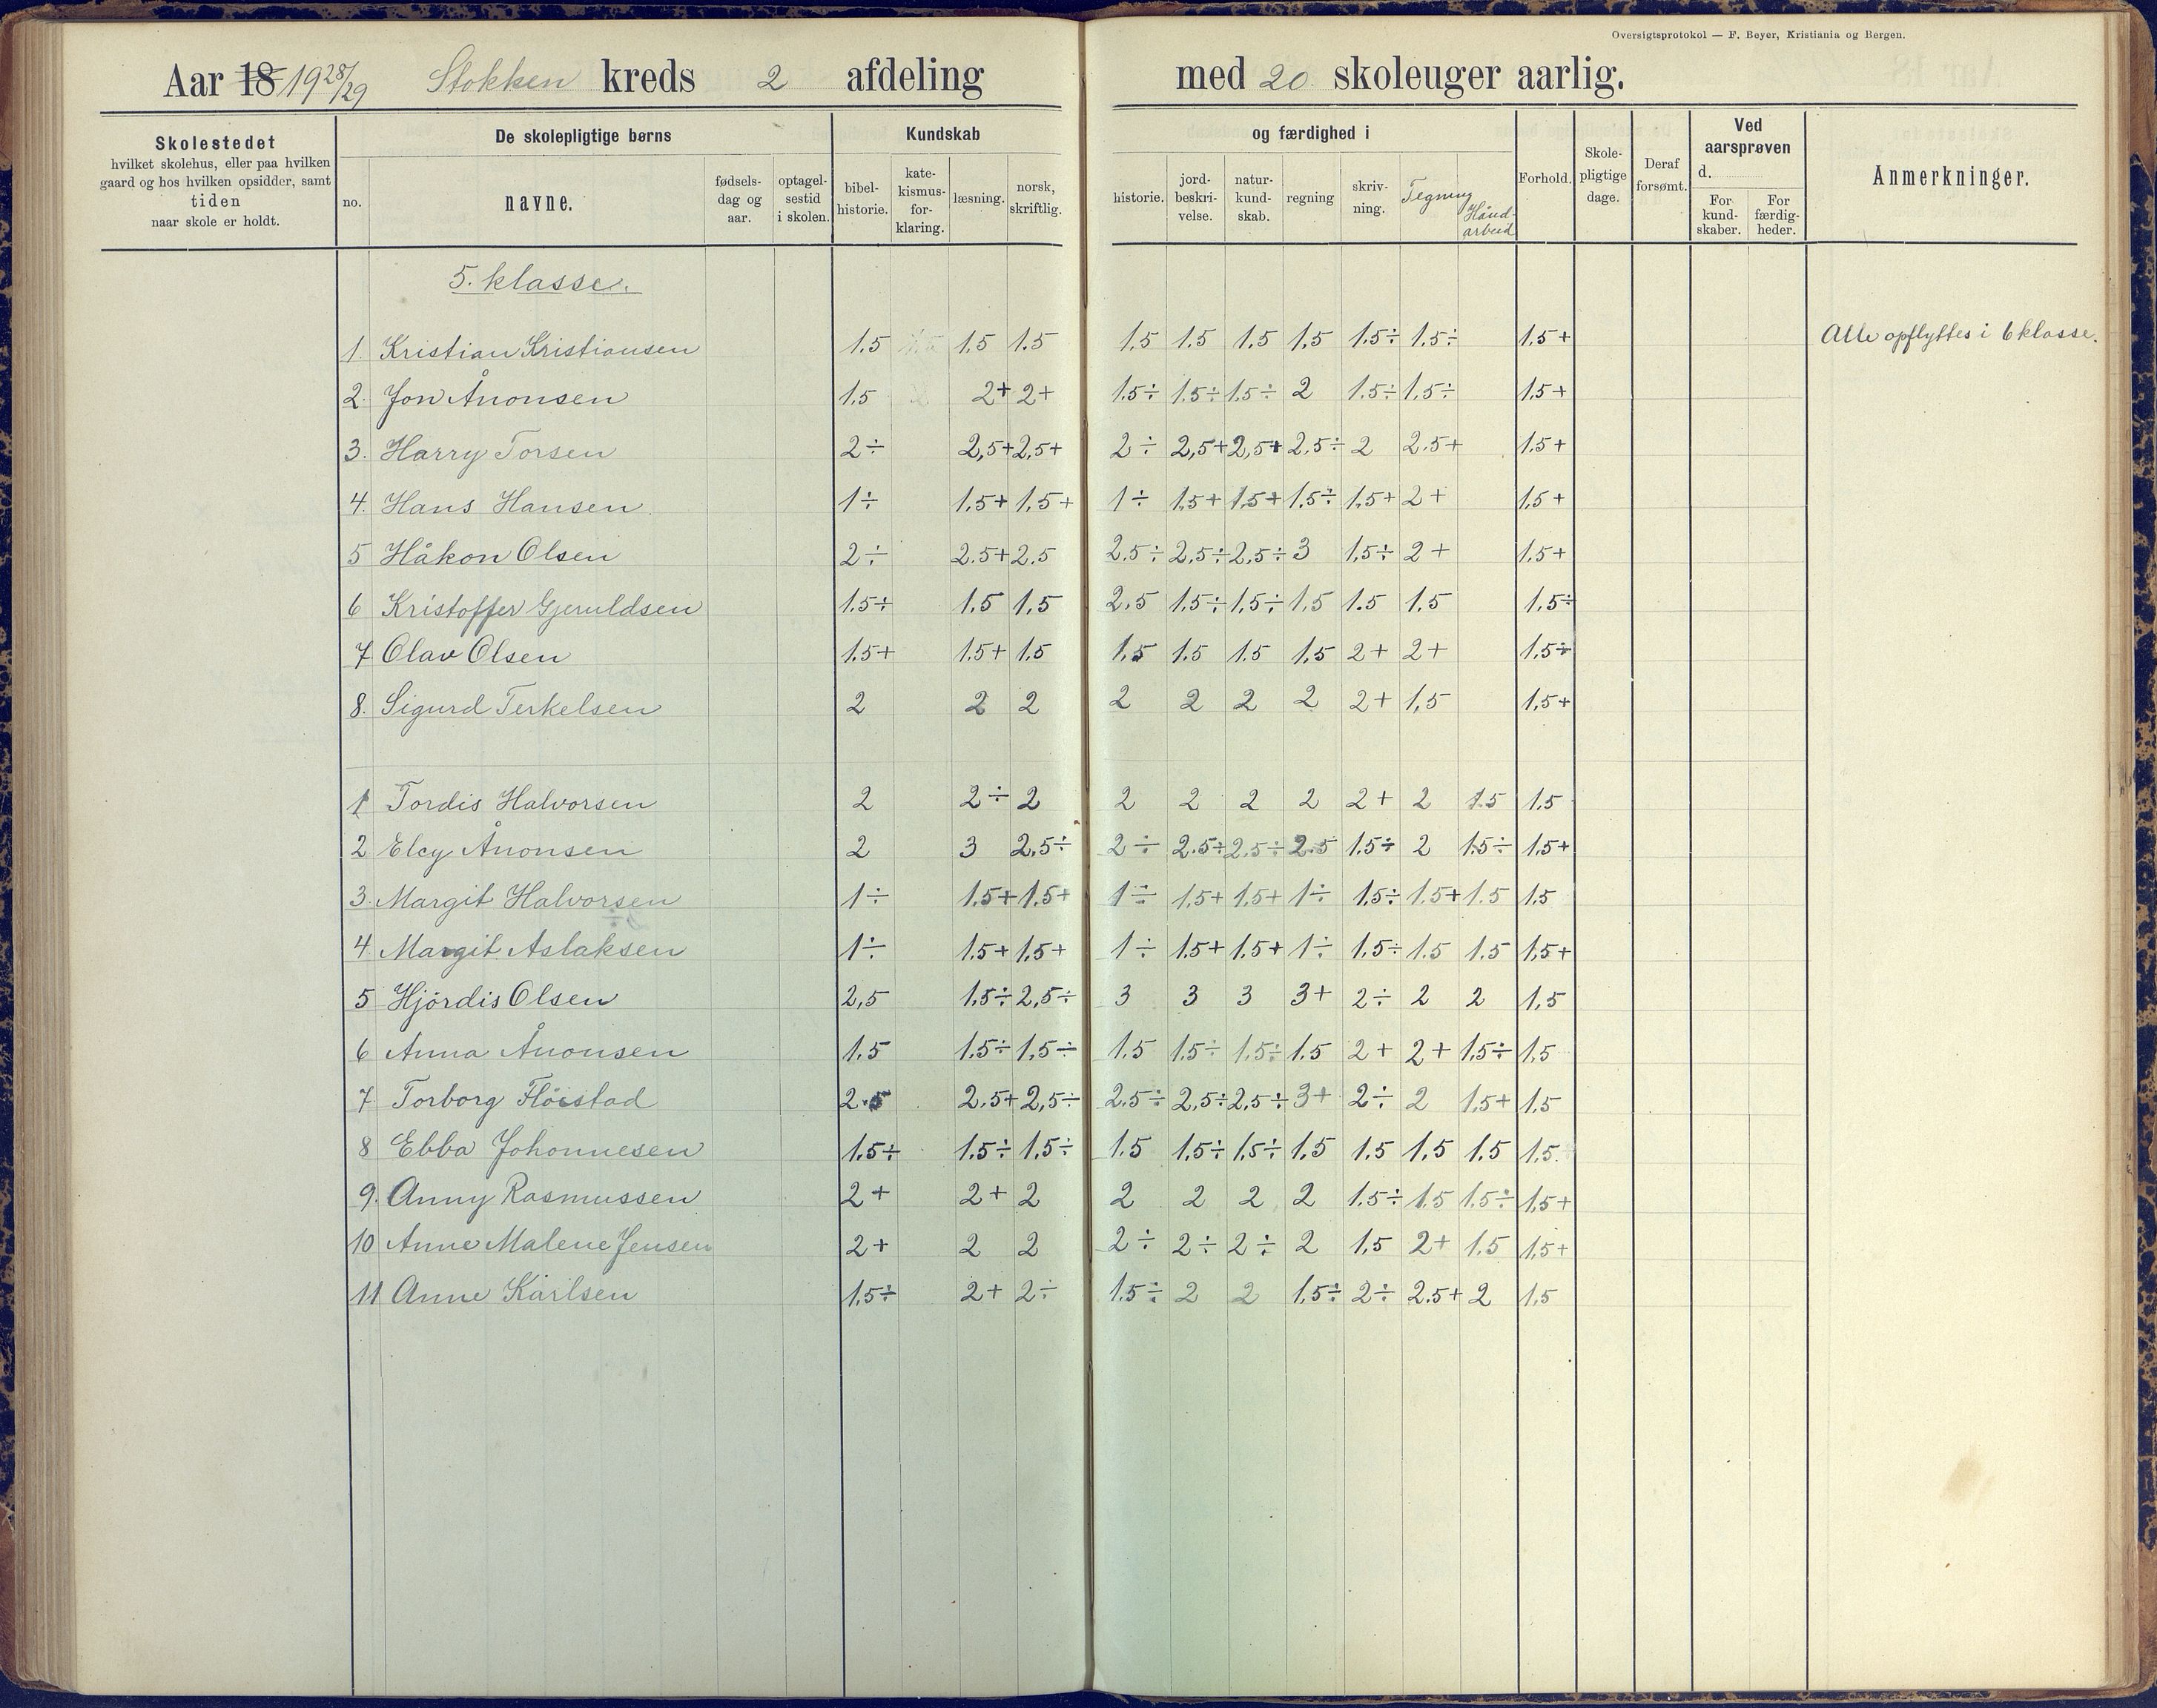 Oversigtsprotokol — F. Beyer, Kristiania og Bergen.
Aar 18 1928/29 Stokken kreds 2 afdeling med 20 skoleuger aarlig.
Skolestedet
hvilket skolehus, eller paa hvilken
gaard og hos hvilken opsidder, samt
tiden
naar skole er holdt.
De skolepligtige børns
no.
navne.
fødsels-
dag og
aar.
optagel-
sestid
i skolen.
Kundskab
bibel-
historie.
kate-
kismus-
for-
klaring.
læsning.
norsk,
skriftlig.
og færdighed i
historie.
jord-
beskri-
velse.
natur-
kund-
skab.
regning
skriv-
ning.
Tegning
Hånd-
arbeid
Forhold.
Skole-
pligtige
dage.
Deraf
forsømt.
Ved
aarsprøven
d.
For
kund-
skaber.
For
færdig-
heder.
Anmerkninger.
5. klasse.
1. Kristian Kristiansen 1.5 1.5 1.5 1.5 1.5 1.5 1.5 1.5÷ 1.5÷ 1.5+ Alle opflyttes i 6 klasse.
2. Jon Ånonsen 1.5 2+ 2+ 1.5÷ 1.5÷ 1.5÷ 2 1.5÷ 1.5÷ 1.5+
3. Harry Torsen 2÷ 2,5+ 2,5+ 2÷ 2,5+ 2,5+ 2.5÷ 2 2.5+ 1.5+
4. Hans Hansen. 1÷ 1.5+ 1.5+ 1÷ 1.5+ 1.5+ 1.5÷ 1.5+ 2+ 1.5+
5 Håkon Olsen 2÷ 2.5+ 2.5 2.5÷ 2,5÷ 2,5÷ 3 1.5÷ 2+ 1.5+
6 Kristoffer Gjeruldsen 1.5÷ 1.5 1.5 2.5 1.5÷ 1.5÷ 1.5 1.5 1.5 1.5÷
7 Olav Olsen 1.5+ 1.5+ 1.5 1.5 1.5 1.5 1.5 2+ 2+ 1.5÷
8. Sigurd Terkelsen 2 2 2 2 2 2 2 2+ 1,5 1,5+
1 Tordis Halvorsen 2 2÷ 2 2 2 2 2 2+ 2 1.5 1.5
2 Elcy Ånonsen 2 3 2.5÷ 2÷ 2.5÷ 2.5÷ 2.5 1.5÷ 2 1.5÷ 1.5+
3. Margit Halvorsen 1÷ 1.5+ 1.5+ 1÷ 1.5+ 1.5+ 1÷ 1.5÷ 1.5+ 1.5 1.5
4 Margit Aslaksen 1÷ 1.5+ 1.5+ 1÷ 1.5+ 1.5+ 1÷ 1.5÷ 1.5 1.5 1.5+
5 Hjördis Olsen 2,5 1.5÷ 2,5÷ 3 3 3 3+ 2÷ 2 2 1,5
6 Anna Ånonsen 1.5 1.5÷ 1.5÷ 1.5 1.5÷ 1.5÷ 1.5 2+ 2+ 1.5÷ 1.5
7 Torborg Flöistad 2.5 2.5+ 2,5÷ 2.5÷ 2,5÷ 2,5÷ 3+ 2÷ 2 1.5+ 1.5
8 Ebba Johannesen 1.5÷ 1.5÷ 1.5÷ 1.5 1.5÷ 1.5÷ 1.5 1.5 1.5 1.5 1.5.
9. Anny Rasmussen 2+ 2+ 2 2 2 2 2 1.5÷ 1.5 1.5÷ 1.5+
10 Anne Malene Jensen 2+ 2 2 2÷ 2÷ 2÷ 2 1.5 2+ 1.5 1.5+
11 Anne Karlsen 1.5÷ 2+ 2÷ 1.5÷ 2 2 1.5÷ 2÷ 2.5+ 2 1.5